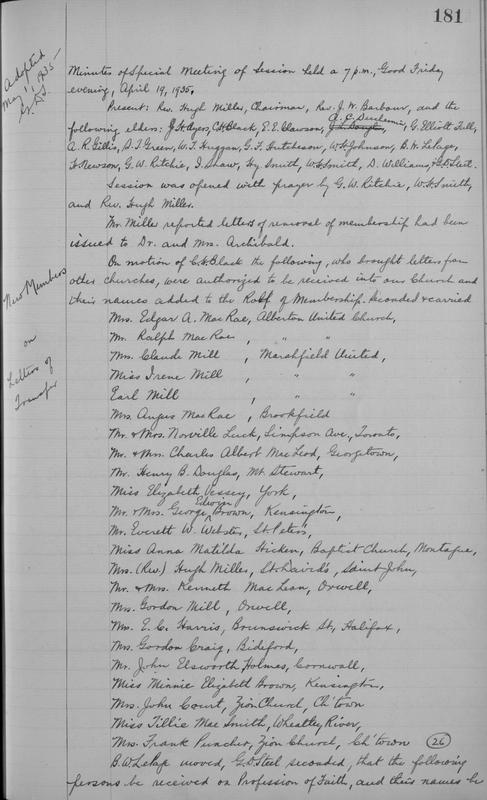 181
Adopted
May 1, 1935 –
G.D.S.
Minutes of Special Meeting of Session held a 7 p.m., Good Friday
evening, April 19, 1935.
Present: Rev. Hugh Miller, Chairman, Rev. J. W. Barbour, and the
A. C. Duchemin
following elders: J. H. Ayers, C. H. Black, E. E. Clawson, G. Elliott Full,
A. R. Gillis, D. T. Green, W. F. Huggan, G. F. Hutcheson, W. H. Johnson, B. W. LePage,
F. Newson, G. W. Ritchie, I. Shaw, Hy. Smith, W. H. Smith, D. Williams, + G. D. Steel.
Session was opened with prayer by G. W. Ritchie, W. H. Smith,
and Rev. Hugh Miller.
Mr. Miller reported letters of removal of membership had been
issued to Dr. and Mrs. Archibald.
On motion of C. H. Black the following, who brought letters from
other churches, were authorized to be received into our Church and
their names added to the Roll of Membership. Seconded & carried
New Members
on
Letters of
Transfer
Mrs. Edgar A. MacRae, Alberton United Church,
Mr. Ralph MacRae, " "
Mrs. Claude Mill, Marshfield United,
Miss Irene Mill, " "
Earl Mill, " "
Mrs. Angus MacRae, Brookfield
Mr. & Mrs. Norville Luck, Simpson Ave., Toronto,
Mr. & Mrs. Charles Albert MacLeod, Georgetown,
Mr. Henry B. Douglas, Mt. Stewart,
Miss Elizabeth Vessey, York,
Edwin
Mr. & Mrs. George Brown, Kensington,
Mr. Everett W. Webster, St. Peters,
Miss Anna Matilda Hicken, Baptist Church, Montague,
Mrs. (Rev.) Hugh Miller, St. David's, Saint John,
Mr. & Mrs. Kenneth MacLean, Orwell,
Mrs. Gordon Mill, Orwell,
Mrs. E. C. Harris, Brunswick St., Halifax,
Mrs. Gordon Craig, Bideford,
Mr. John Elsworth Holmes, Cornwall,
Miss Minnie Elizabeth Brown, Kensington,
Mrs. John Court, Zion Church, Ch'town
Miss Tillie Mae Smith, Wheatley River,
Mrs. Frank Puncher, Zion Church, Ch'town 26
B. W. LePage moved, G. D. Steel seconded, that the following
persons be received on Profession of Faith, and their names be